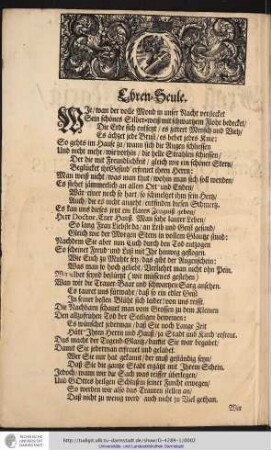 Ehren-Seule.
Wie/ wan der volle Mond in unser Nacht verstecket
Sein schönes Silber-weiß mit schwartzem Flohr bedecket/
Die Erde sich entsetzt/ es zittert Mensch und Vieh/
Es ächzet jede Brust/ es bebet jedes Knie:
So gehts im Hause zu/ wann sich die Augen schliessen
Und nicht mehr/ wie vorhin/ die helle Strahlen schiessen/
Der die mit Freundlichkeit/ gleich wie ein schöner Stern/
Beglücket ihr Gesind/ erfreuet ihren Herrn:
Man weiß nicht/ was man thut/ wohin man sich soll wenden/
Es siehet jämmerlich an allen Ort- und Enden/
Wär einer noch so hart/ so schmeltzet ihm sein Hertz/
Auch/ die es nicht angeht/ empfinden diesen Schmertz.
Es kan uns dieses jetzt ein klares Zeugnuß geben/
Herr Doctor, Euer Hauß. Man sahe lauter Leben/
So lang Frau Liebste da/ an Leib und Geist gesund/
Gleich wie der Morgen Stern in vollem Glantze stund:
Nachdem Sie aber nun Euch durch den Tod entzogen
So scheinet Freud und Lust mit Ihr hinweg geflogen.
Wie Euch zu Muthe sey/ das gibt der Augenschein:
Was man so hoch geliebt/ Verliehret man nicht ohn Pein.
Wir selber seynd bestürtzt/ wir müssen gestehen/
Wan wir der Trauer-Baar und schwartzen Sarg ansehen.
Es tauret uns fürwahr/ daß so ein edler Geist
In seiner besten Blüth sich leider! von uns reisst.
Die Nachbarn schauet man vom Grossen zu dem Kleinen
Den allzufrühen Tod der Seeligen beweinen:
Es wünschet jederman/ daß Sie noch Lange Zeit
Hätt' Ihren Herrn und Hauß/ ja Stadt und Land erfreut.
Das macht der Tugend-Glantz/ darmit Sie war begabet/
Damit Sie jederman erfreuet und gelabet.
Wer Sie nur hat gekant/ der muß geständig seyn/
Daß Sie die gantze Stadt ergötzt mit Ihrem Schein.
Jedoch/ wann wir die Sach was reiffer überlegen/
Und GOttes heilgen Schluß in seiner Furcht erwegen/
So werden wir also das Trauren stellen an/
Daß nicht zu wenig werd' auch nicht zu Viel gethan.
Wer
http://tudigit.ulb.tu-darmstadt.de/show/G-4299-1/0002
Universitäts- und Landesbibliothek Darmstadt